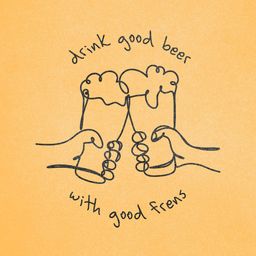 drink good beer
with good frens